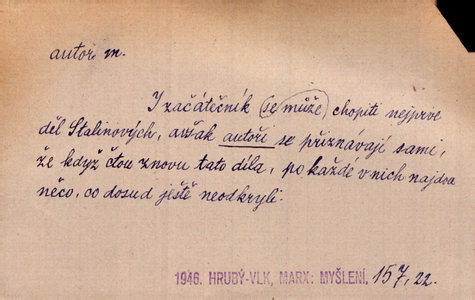 autoři m.
I začátečník (se může) chopiti nejprve
děl Stalinových, avšak autoři se přiznávají sami,
že když čtou znovu tato díla, po každé v nich najdou
něco, co dosud ještě neodkryli.
1946. HRUBÝ-VLK, MARX: MYŠLENÍ, 157, 22.